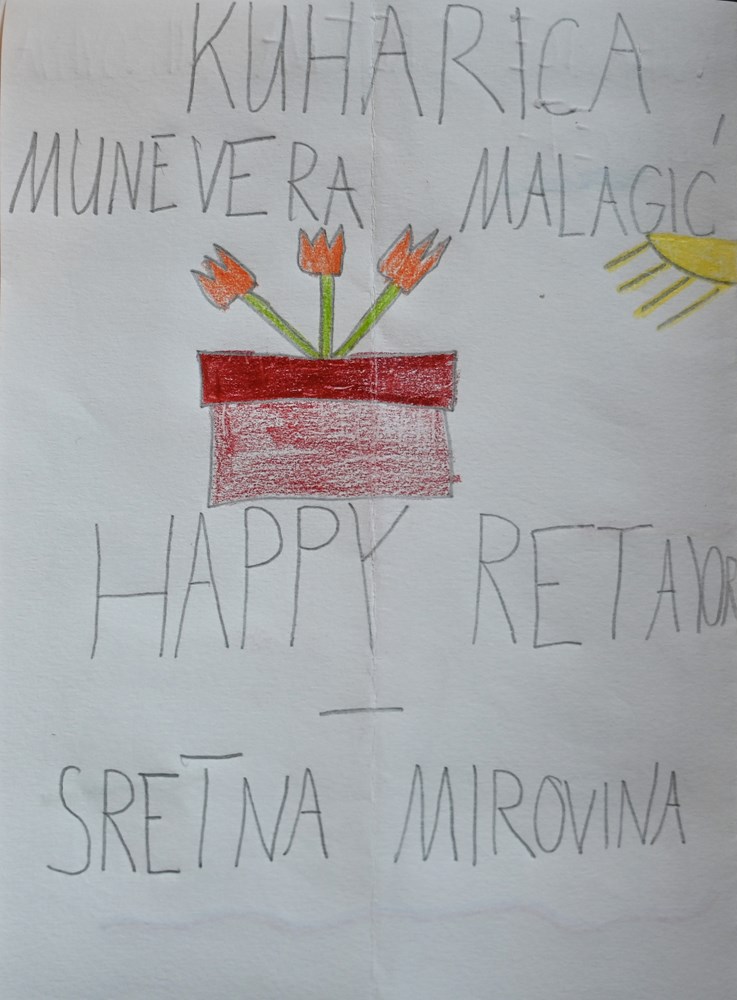 KUHARICA
MUNEVERA MALAGIĆ
HAPPY RETAYOR
—
SRETNA MIROVINA